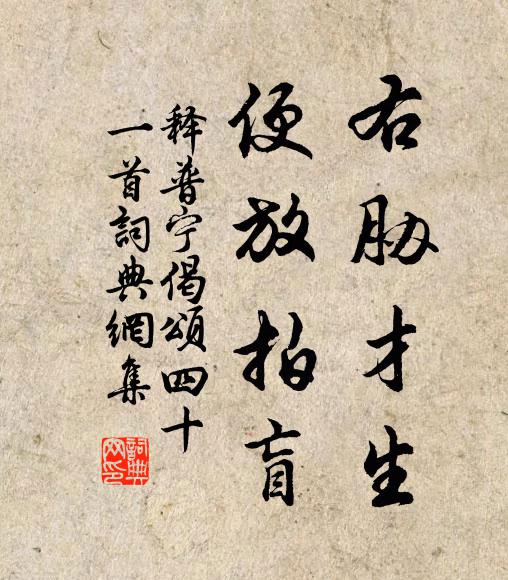 右胁才生
便放拍盲
释普宁偈頌四十
一首詞典網集
詞典
网印